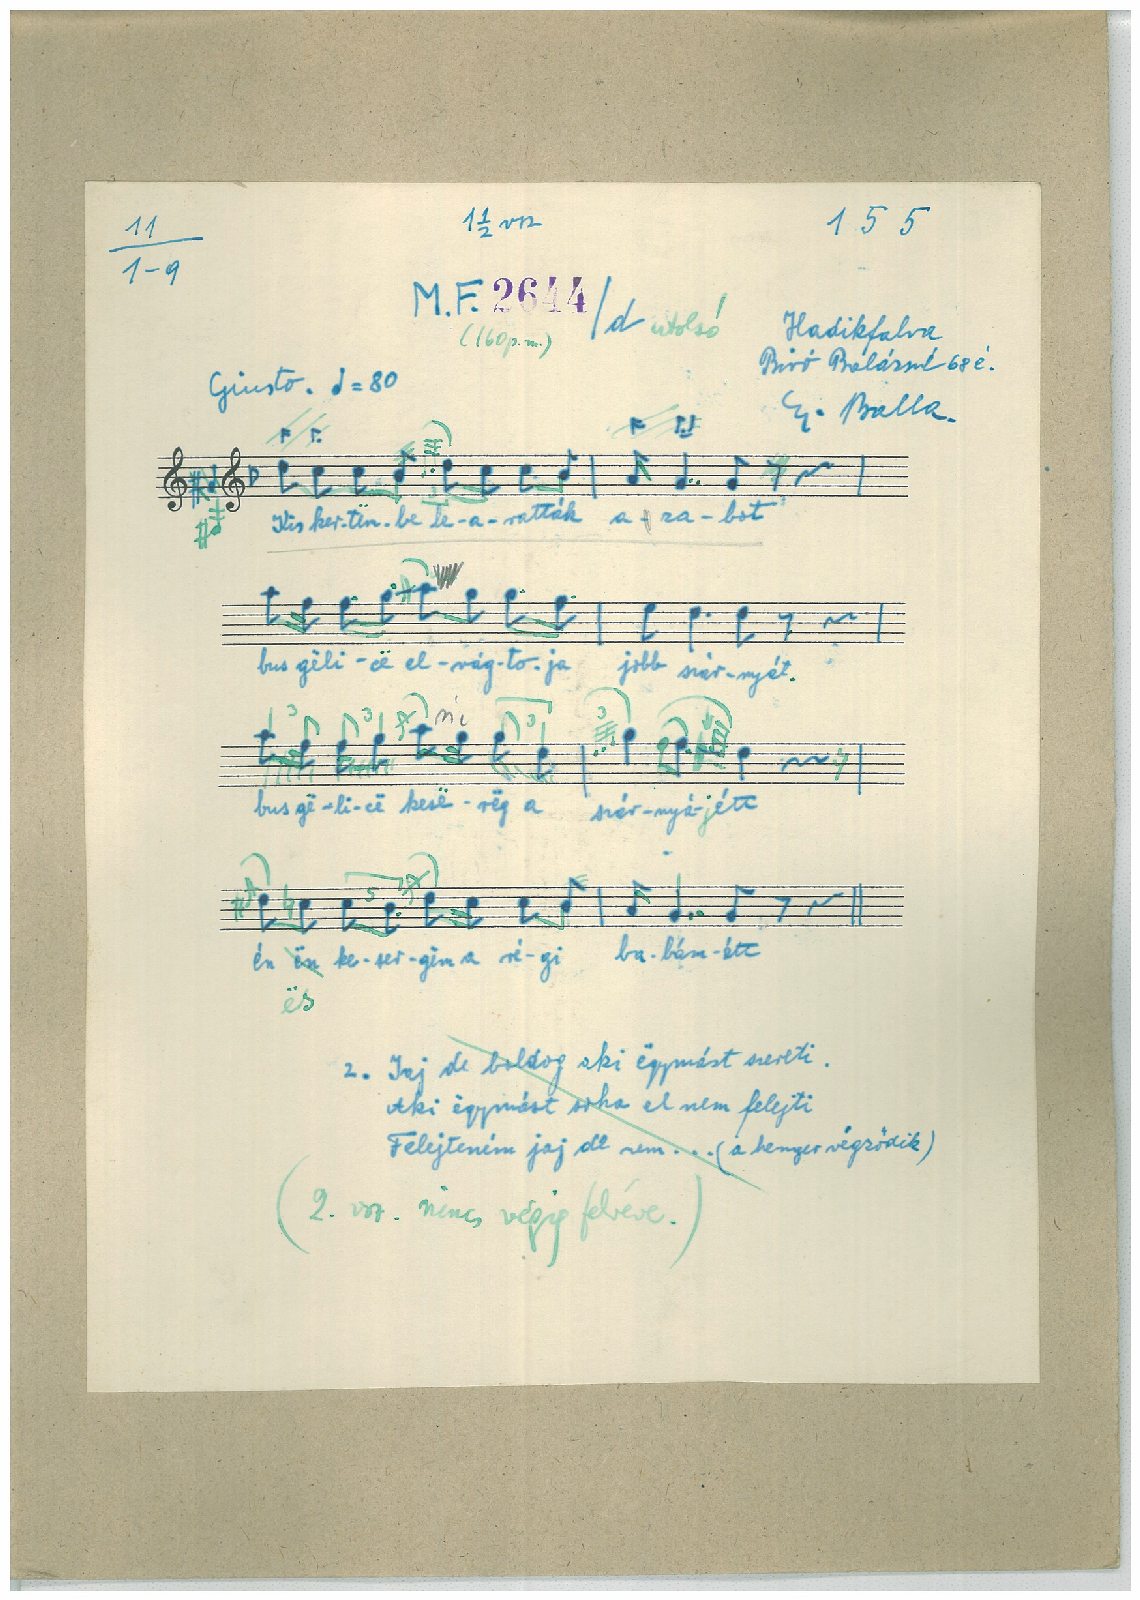 11
1-9
1 1/2 vsz
1 5 5
M.F. 2644/d utolsó
(160 p.m.)
Hadikfalva
Biró Balázsné 68 é.
Balla.
Giusto. ♩=80
Kis ker-tëm-be le-a-ratták a-za-bot
bus gëli-cë el-vág-to-ja jobb szár-nyát.
3 3 ni 3 3
bus gë-li-cë kesë-rëg a szár-nyá-jétt
5
én ën ke-ser-gëm a ré-gi ba-bám-étt
ës
2. Jaj de boldog aki ëgymást szereti.
Aki ëgymást soha el nem felejti
Felejteném jaj de nem...(a henger végződik)
(2. vsz. nincs végig felvéve.)